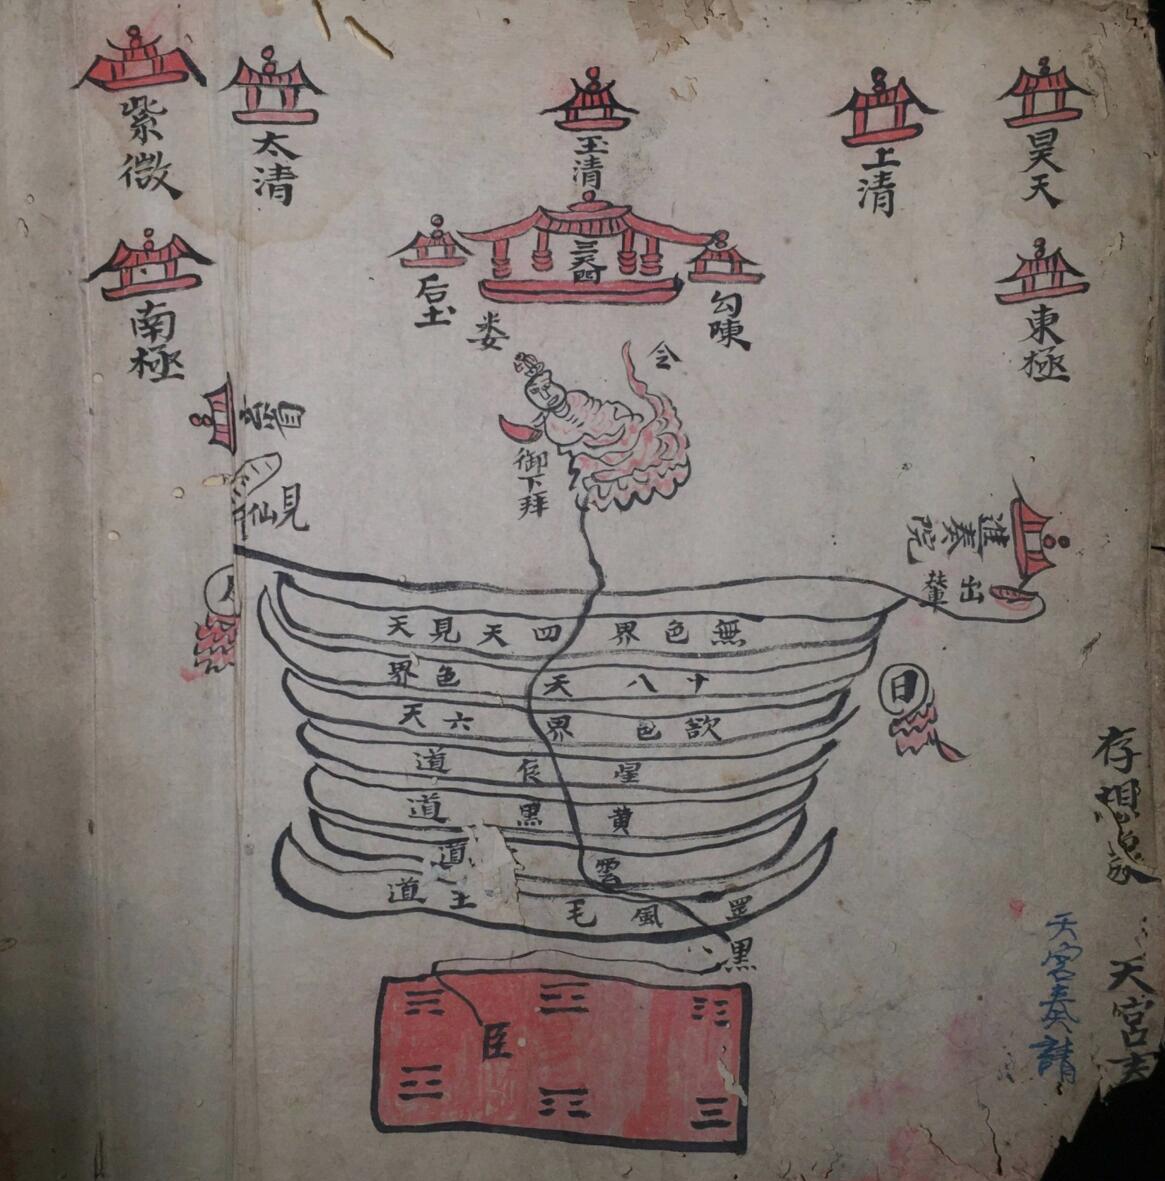 昊天
上清
玉清
太清
紫微
三天門
勾陳
后土
東極
南極
娄
令
御下拜
進奏院
出輦
見
仙見
日
無色界四天見天
十八天色界
欲色界六天
星辰道
黄黑道
雲道
罡風毛土道
黑
臣
存想
天宮
天宮奏請